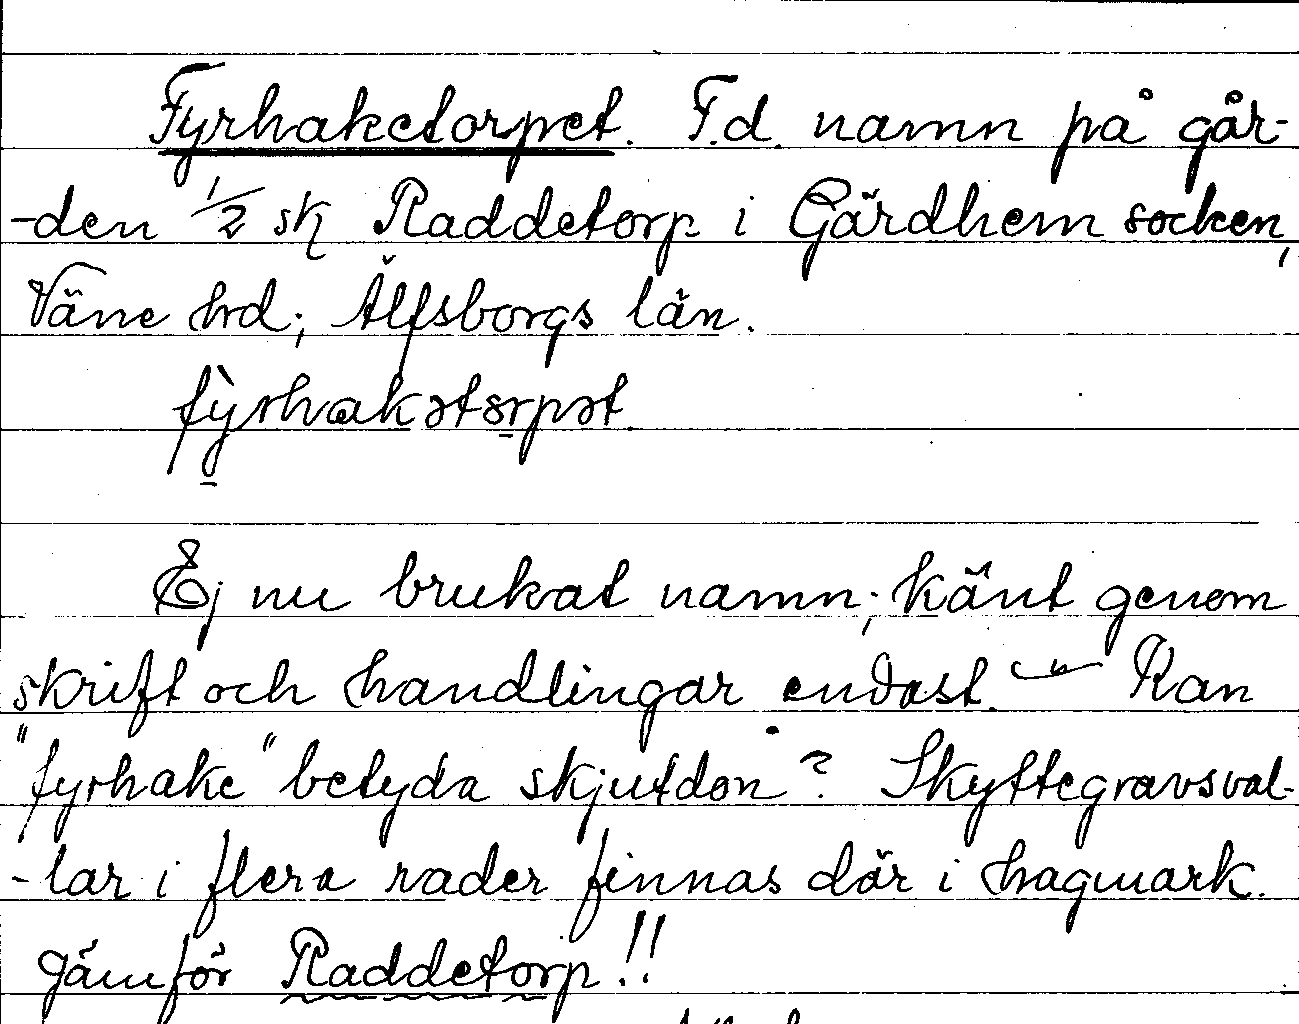 Fyrhaketorpet. F.d. namn på går-
-den 1/2 sk Raddetorp i Gärdhem socken,
Väne hrd; Älfsborgs län.
fỳrhakətɷrpət.
Ej nu brukat namn; känt genom
skrift och handlingar endast. — Kan
"fyrhake" betyda skjutdon? Skyttegravsval-
-lar i flera rader finnas där i hagmark.
Jämför Raddetorp!!